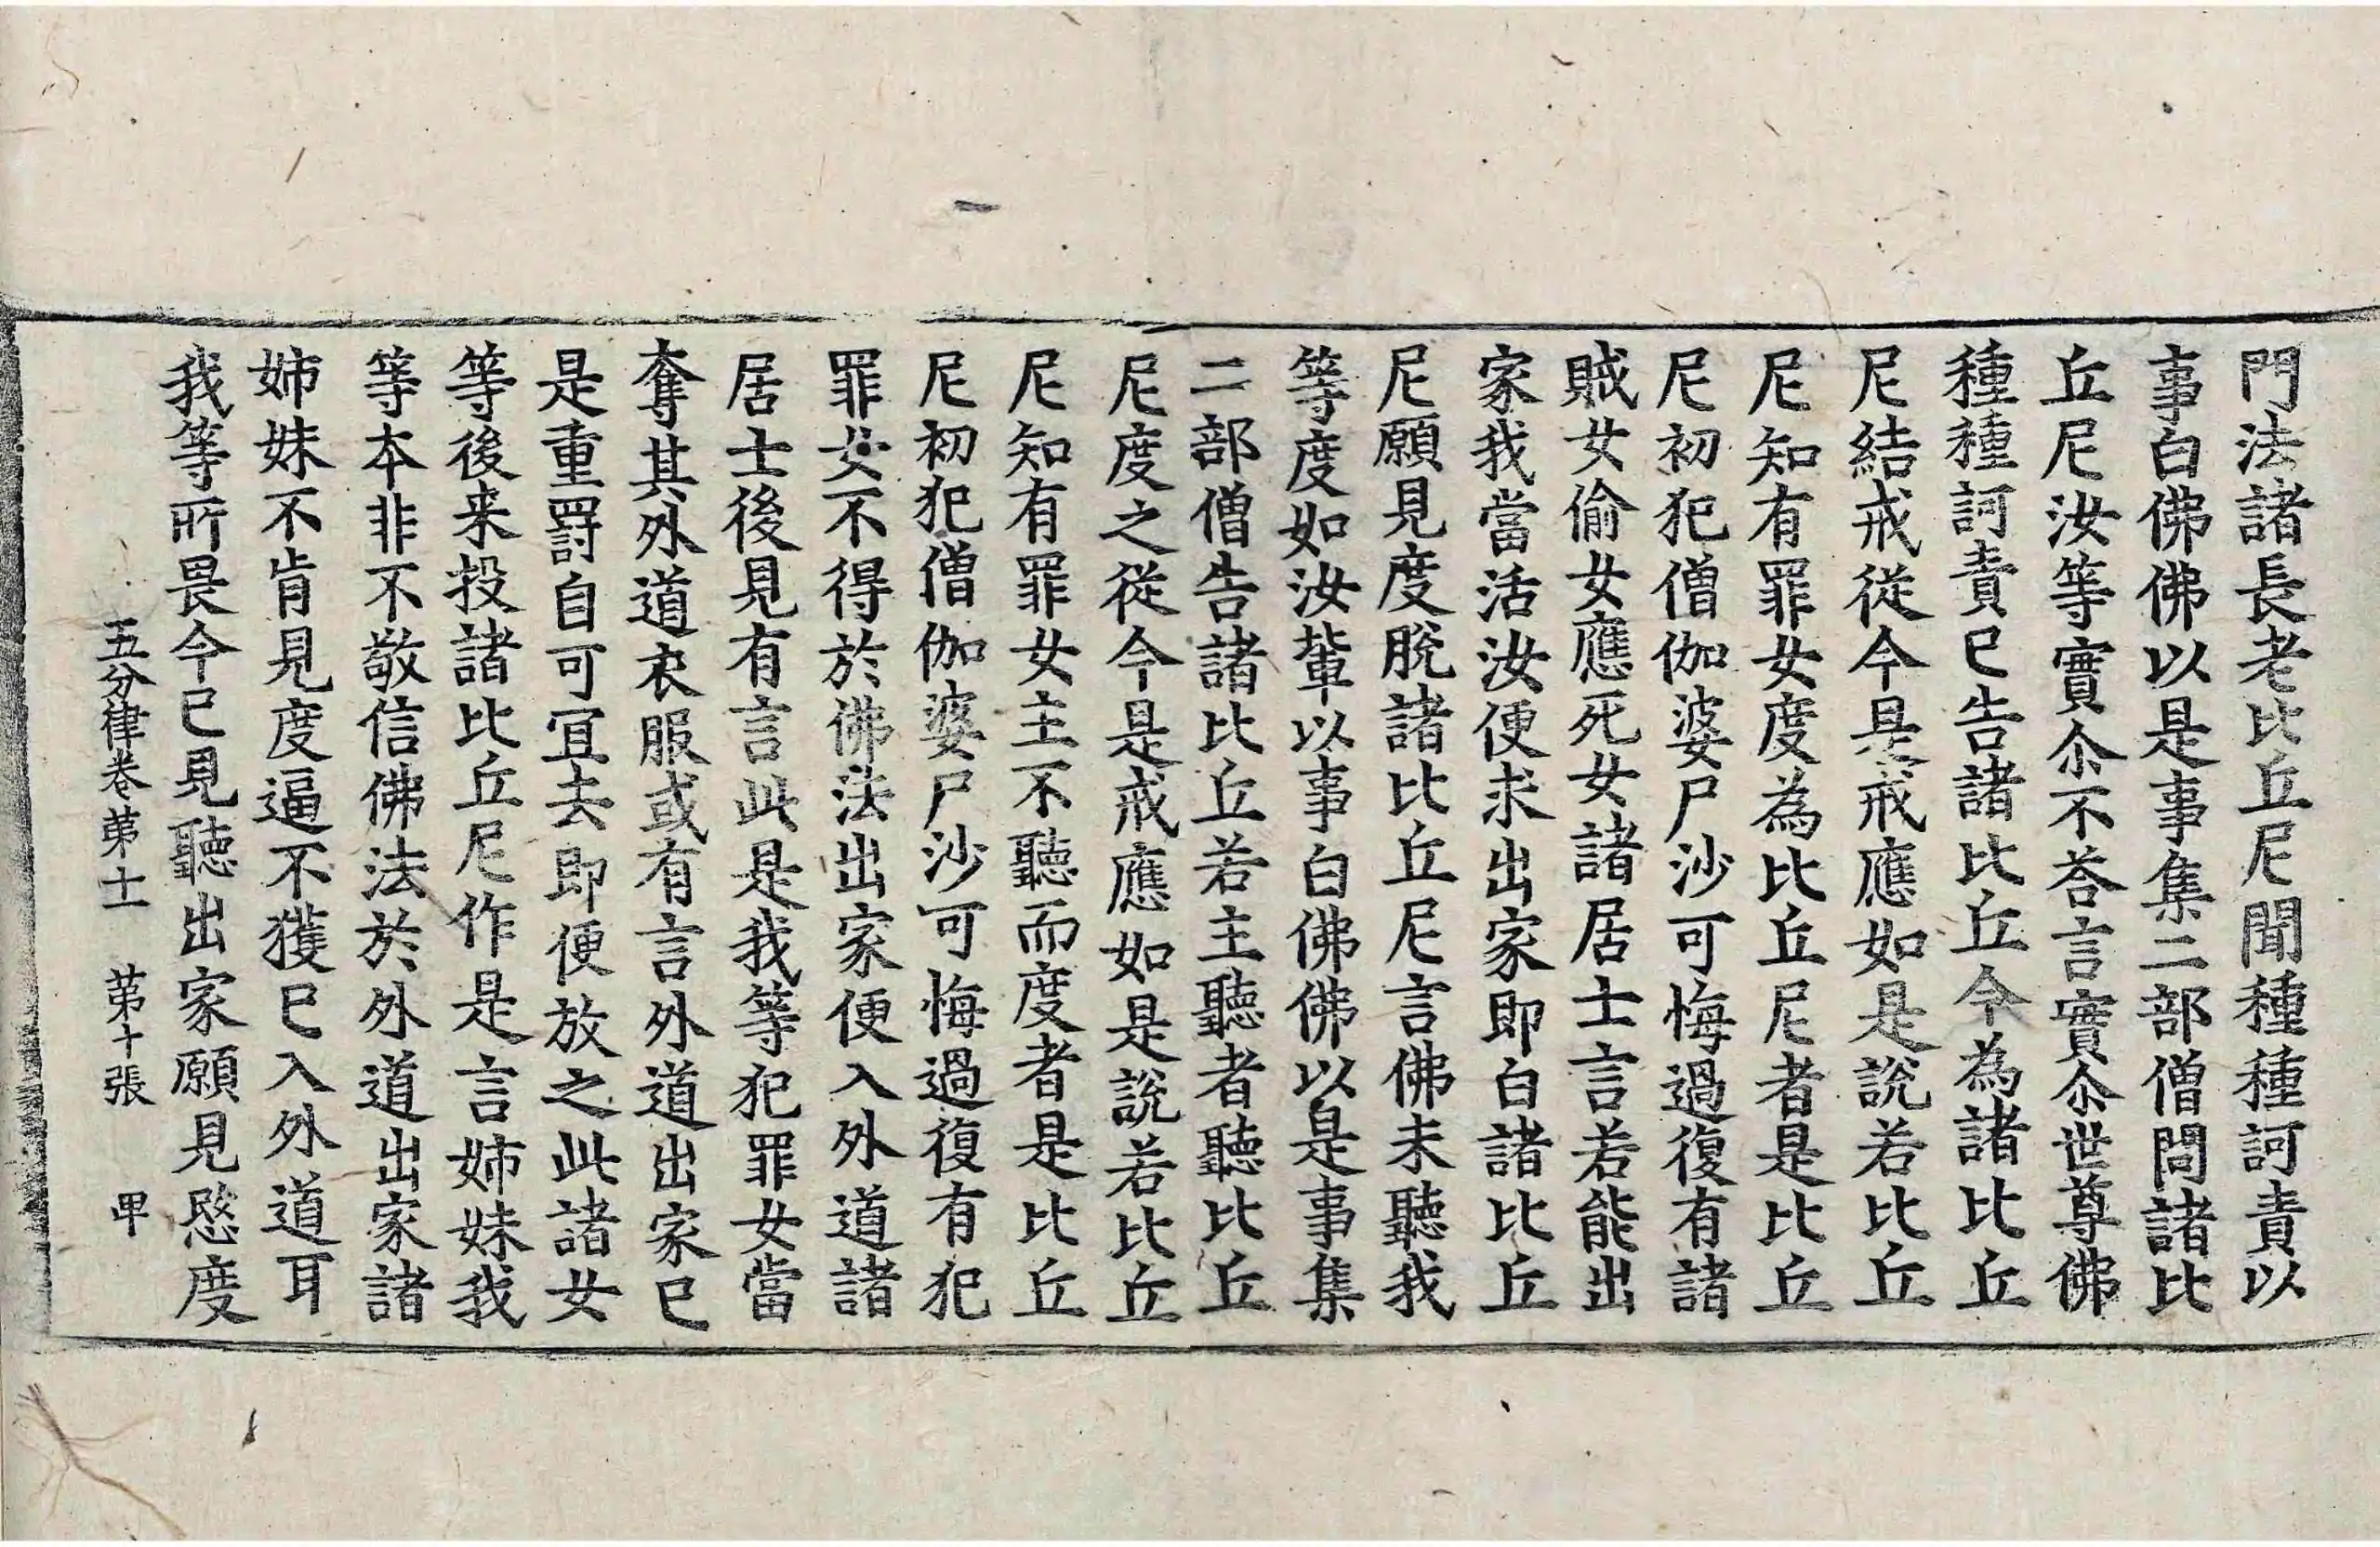 門法諸長老比丘尼聞種種訶責以
事白佛佛以是事集二部僧問諸比
丘尼汝等實尒不荅言實尒世尊佛
種種訶責已告諸比丘今為諸比丘
尼結戒從今是戒應如是說若比丘
尼知有罪女度為比丘尼者是比丘
尼初犯僧伽婆尸沙可悔過復有諸
賊女偷女應死女諸居士言若能出
家我當活汝便求出家即白諸比丘
尼願見度脫諸比丘尼言佛未聽我
等度如汝輩以事白佛佛以是事集
二部僧告諸比丘若主聽者聽比丘
尼度之從今是戒應如是說若比丘
尼知有罪女主不聽而度者是比丘
尼初犯僧伽婆尸沙可悔過復有犯
罪女不得於佛法出家便入外道諸
居士後見有言此是我等犯罪女當
奪其外道衣服或有言外道出家已
是重罸自可冝去即便放之此諸女
等後来投諸比丘尼作是言姉妹我
等本非不敬信佛法於外道出家諸
姉妹不肯見度逼不獲已入外道耳
我等所畏今已見聽出家願見愍度
五分律卷苐十一　苐十張　甲